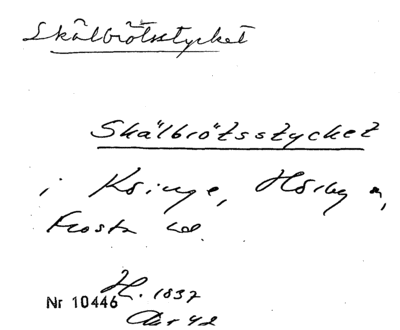 Skålbrötsstycket
Skålbrötsstycket
i Kringe, Hörby sn,
Frosta hd.
H. 1837
Nr 10446
Akt 42